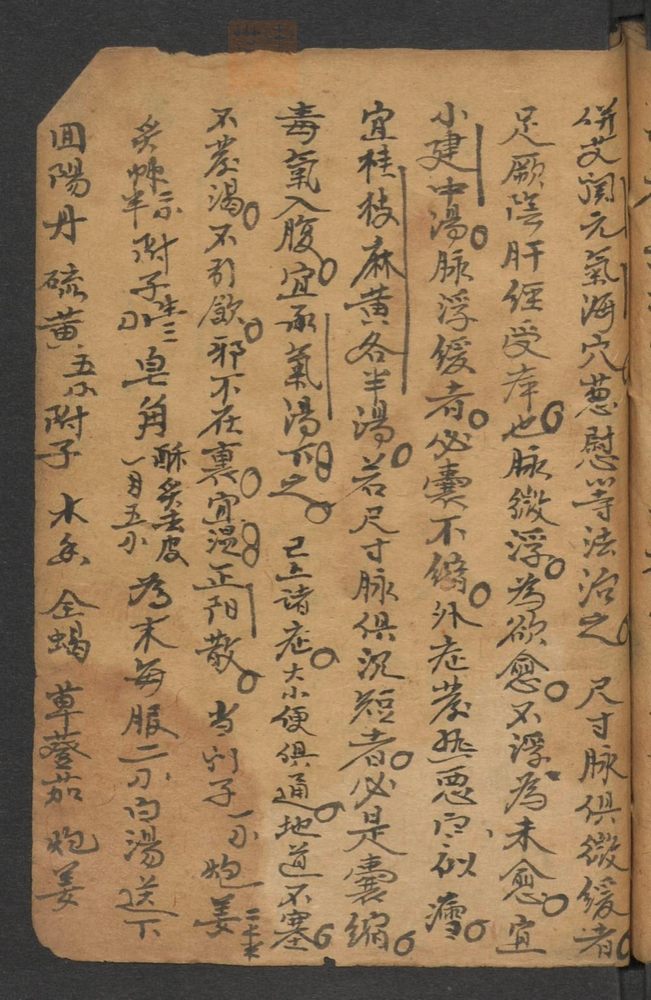 併艾関元氣海穴葱慰等法治之 尺寸脉俱微緩者
足厥陰肝経受病也脉微浮為欲愈不浮為未愈宜
小建中湯脉浮緩者必囊不縮外症發熱悪寒似瘧
宜桂枝麻黄各半湯若尺寸脉俱沉短者必是囊縮
毒氣入腹宜承氣湯下之 已上諸症大小便俱通地道不塞
不發渴不引飲邪不在裏宜温正阳散 附子一个炮姜
炙草 附子 皂角 酥炙去皮 為末每服二刀白湯送下
囬陽丹 硫黄五分 附子 木香 全蝎 蓽蔢茄 炮姜